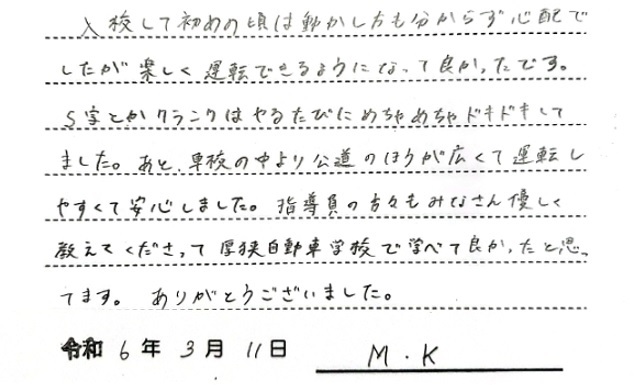 入校して初めの頃は動かし方も分からず心配で
したが楽しく運転できるようになって良かったです。
S字とかクランクはやるたびにめちゃめちゃドキドキして
ました。あと、車校の中より公道のほうが広くて運転し
やすくて安心しました。指導員の方々もみなさん優しく
教えてくださって厚狭自動車学校で学べて良かったと思っ
てます。ありがとうございました。
令和 6 年 3 月 11 日 M・K